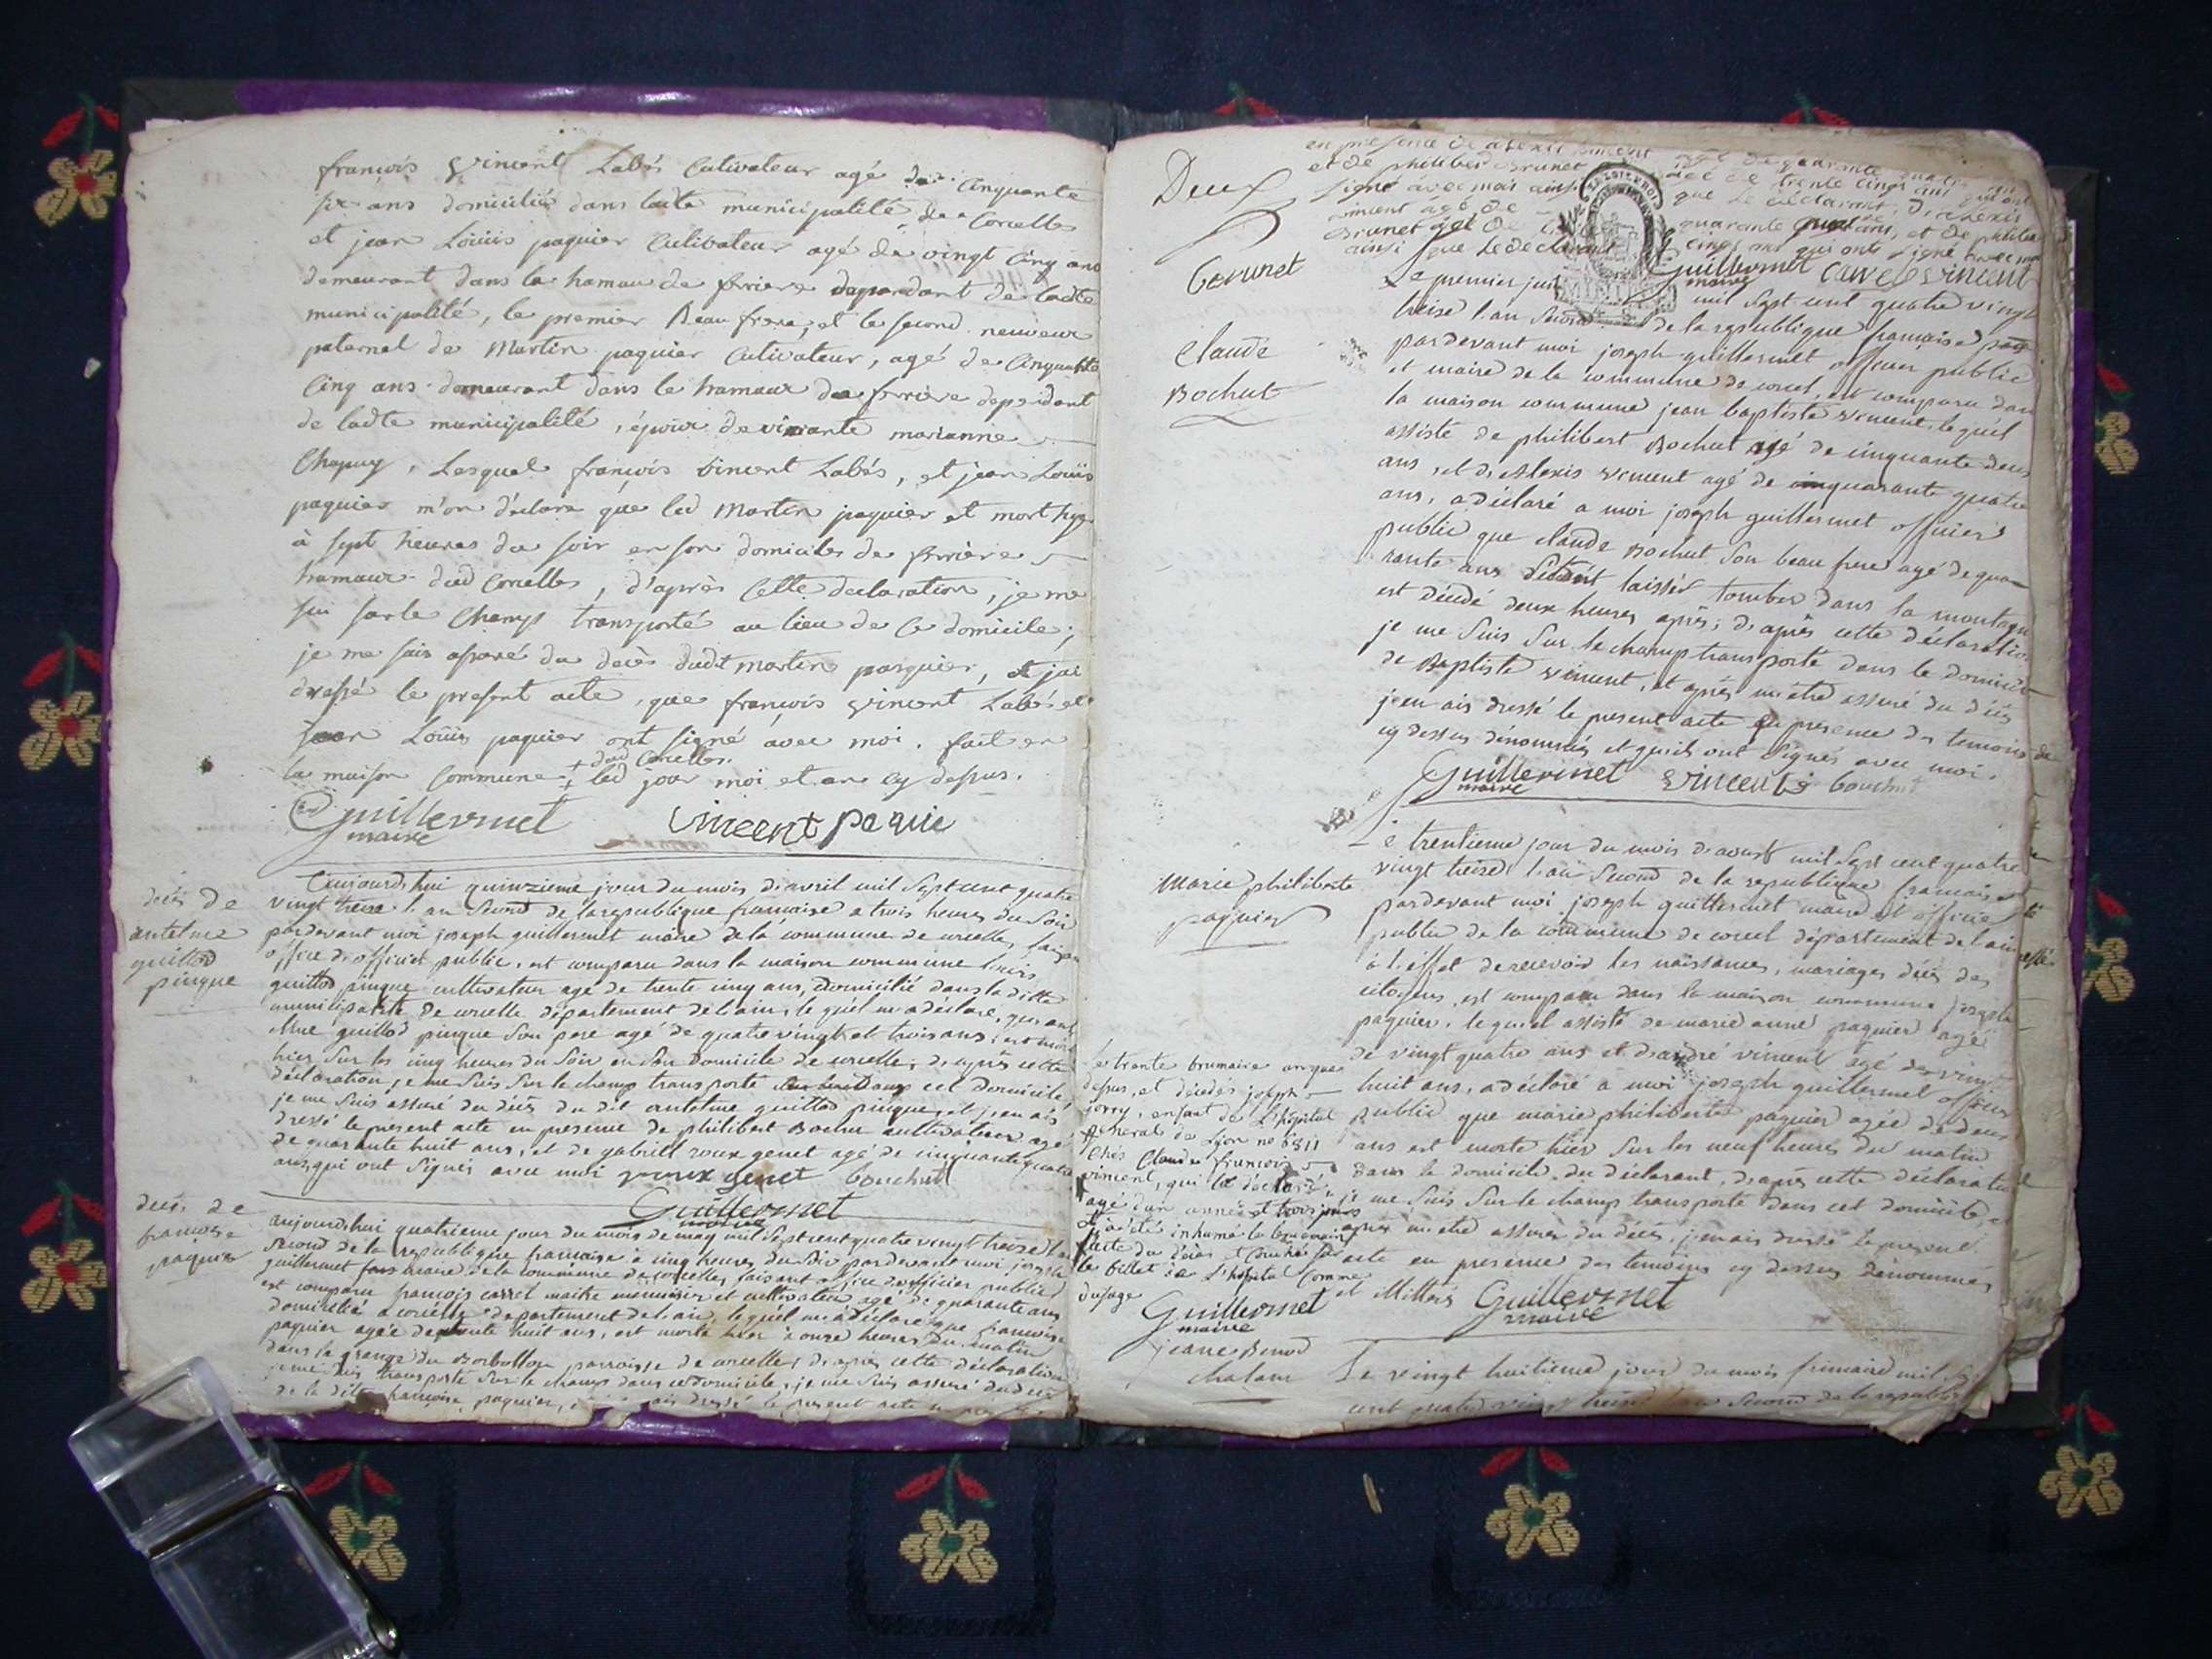 françois Vincent Labés Cultivateur agé de Cinquante
six ans domicilié dans ladte municipalité de Corcelles
et jean Loüis paquier Cultivateur agé de vingt Cinq ans
demeurant dans le hamau de ferriere dependant de ladte
municipalité, le premier Beau frere, et le second neuveux
paternel de Martin paquier Cultivateur, agé de Cinquante
Cinq ans demeurant dans le hamaux de ferriere dependant
de ladte municipalité, époux de vivante marianne
Chapuy, Lesquel françois vincent Labés, et jean Loüis
paquier m'on déclaré que led Martin paquier et mort hyer
à sept heures du soir en son domicile de ferriere
hamaux dud Corcelles, d'après Cette declaration, je me
sui sur le Champ transporté au lieu de ce domicile,
je me suis assuré du decès dudt martin paquier, et jai
dressé le present acte, que françois Vincent Labés et
jean Loüis paquier ont signé avec moi. fait en
+ dud Corcelles.
la maison Commune + led jour moi et an cy dessus.
Guillermet Vincent paquie
maire
décès de
antelme
guillod
pinque
aujourd'hui quinzieme jour du mois d'avril mil sept cent quatre
vingt treise l'an second de la republique francaise a trois heures du soir
pardevant moi joseph guillermet maire de la commune de corcelles, faisant
office d'officier public, est comparu dans la maison commune louis
guillod pinque cultivateur agé de trente cinq ans, domicilié dans laditte
municipalité de corcelle département de l'ain, le quel m'a déclaré, que ant
elme guillod pinque son pere agé de quatre vingt et trois ans, est mort
hier sur les cinq heures du soir en son domicile de corcelle, d'après cette
déclaration, je me suis sur le champ transporté dans cet domicile
je me suis assuré du décès du dit antelme guillod pinque, et j'en ais
dressé le present acte en presence de philibert Bochu cultivateur agé
de quarante huit ans, et de gabriel roux genet agé de cinquante quatre
ans, qui ont signés avec moi roux genet bouchut
Guillermet
maire
décès de
francoise
paquier
aujourd'hui quatrieme jour du mois de may mil sept cent quatre vingt treise l'an
second de la republique francaise à cinq heures du soir pardevant moi joseph
guillermet maire de la commune de corcelles, faisant office d'officier public
est comparu francois carrel maitre menuisier et cultivateur agé de quarante ans
domicilié a corcelle departement de l'ain, le quel m'a déclaré que francoise
paquier agée de trente huit ans, est morte hier à onze heures du matin
dans la grange du Borbollon parroisse de corcelles, d'après cette déclaration
je me suis transporté sur le champ dans ce domicile, je me suis assuré du décès
de la dite francoise paquier, ais dressé le present acte
Deux
en presence de alexis vincent agé de quarante quatre ans
et de philibert Brunet agé de trente cinq ans qui ont
signé avec moi ainsi que le déclarant, d'alexis
vincent agé de quarante quatre ans, et de philibert
Brunet agé de trente cinq ans qui ont signé avec moi
ainsi que le déclarant
Guillermet carrel vincent
maire
Brunet
Claude
Bochut
Le premier juin mil sept cent quatre vingt
treise l'an second de la republique francaise
pardevant moi joseph guillermet officier public
et maire de la commune de corcel, est comparu dans
la maison commune jean baptiste vincent, lequel
assisté de philibert Bochut agé de cinquante deux
ans, et d'Alexis vincent agé de quarante quatre
ans, a déclaré a moi joseph guillermet officier
public que claude Bochut son beau frere agé de qua
rante ans s'étant laissér tomber dans la montagne
est décédé deux heures après; d'après cette déclaration
je me suis sur le champ transporté dans le domicile
de Baptiste vincent, et après m'etre assuré du décès
j'en ais dressé le present acte en presence des temoins
cy dessus dénommés et qu'ils ont signés avec moi.
Guillermet Vincent bouchut
maire
marie philiberte
paquier
Le trentieme jour du mois d'aoust mil sept cent quatre
vingt treise l'an second de la republique francaise
pardevant moi joseph guillermet maire et officier
public de la commune de corcel département de l'ain
à l'effet de recevoir les naissances, mariages décès des
citoyens, est comparu dans la maison commune joseph
paquier, lequel assisté de marie anne paquier agée
de vingt quatre ans et d'andré vincent agé de vingt
huit ans, a déclaré a moi joseph guillermet officier
public que marie philiberte paquier agée de deux
ans est morte hier sur les neuf heures du matin
dans le domicile du déclarant, d'après cette déclaration
je me suis sur le champ transporté dans cet domicile, et
après m'etre assuré du décès, j'en ais dressé le present
acte en presence des temoins cy dessus dénommés
et illitérés Guillermet
maire
le trante brumaire an que
dessus, et décédés joseph
jorry, enfant de l'hôpital
general de Lyon no 6311
Chés Claude françois
vincent, qui la déclaré
agé d'un année et trois jours
et a été inhumé le lendemain
acte du décès et couché sur
le billet de l'hôpital Comme
d'usage
Guillermet
maire
jeane Benod
chalam
Le vingt huitieme jour du mois frimaire mil sept
cent quatre vingt treise l'an second de la republique